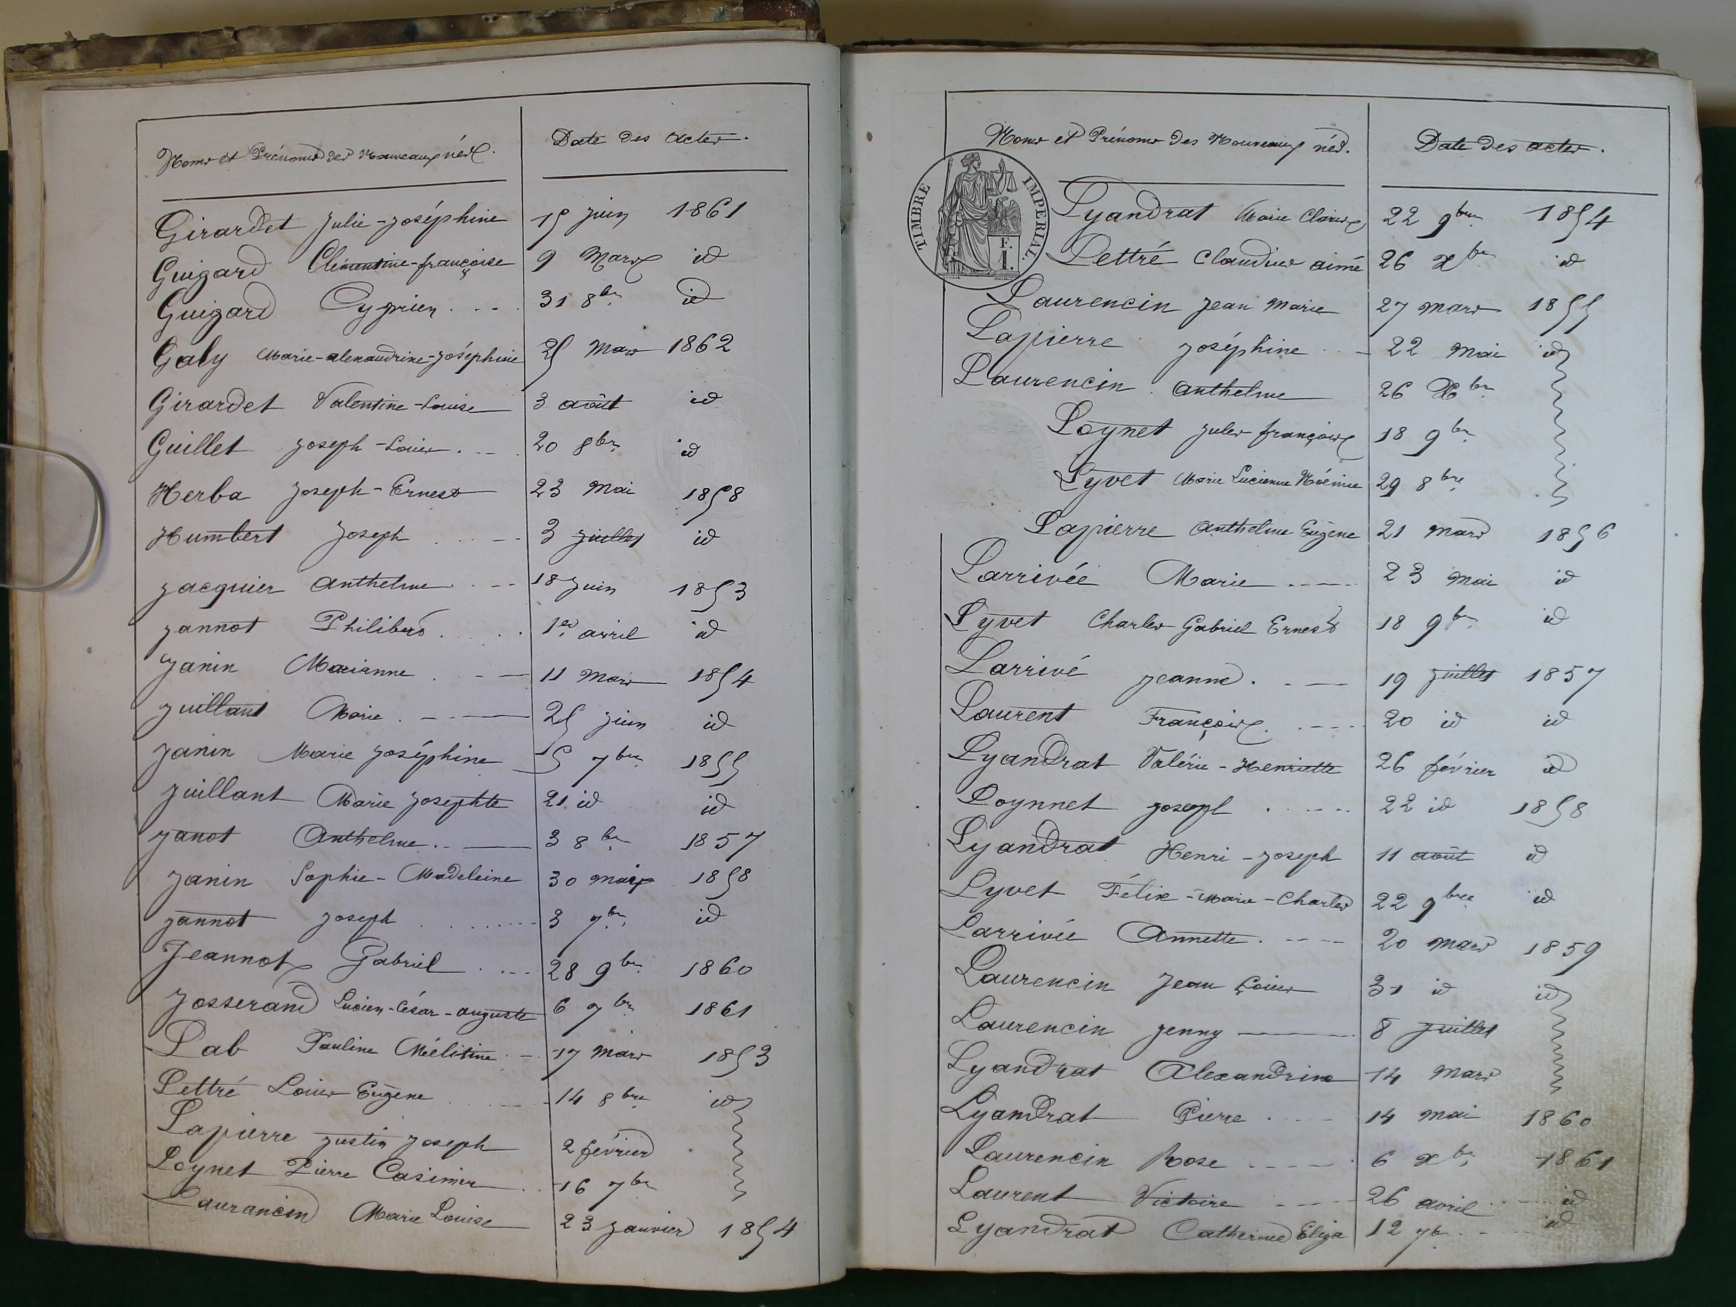 Noms et Prénoms des Nouveaux nés. Date des actes.
Girardet Julie-Joséphine 15 juin 1861
Guigard Clémentine-françoise 9 Mars id
Guigard Cyprien 31 8bre id
Galy Marie-alexandrine-Joséphine 25 Mars 1862
Girardet Valentine-Louise 3 août id
Guillet Joseph-Louis 20 8bre id
Herba Joseph-Ernest 23 Mai 1858
Humbert Joseph 3 juillet id
Jacquier Anthelme 18 juin 1853
Jannot Philibert 1er avril id
Janin Marianne 11 Mars 1854
Juillant Marie 25 juin id
Janin Marie Joséphine 15 7bre 1855
Juillant Marie Josephte 21 id id
Janot Anthelme 3 8bre 1857
Janin Sophie-Madeleine 30 mars 1858
Jannot Joseph 3 7bre id
Jeannot Gabriel 28 9bre 1860
Josserand Lucien-César-auguste 6 7bre 1861
Lab Pauline Mélitine 17 Mars 1853
Lettré Louis Eugène 14 8bre id
Lapierre Justin Joseph 2 février
Loynet Pierre Casimir 16 7bre
Laurancin Marie Louise 23 janvier 1854
Noms et Prénoms des Nouveaux nés. Date des actes.
TIMBRE IMPÉRIAL.
Lyandrat Marie 22 9bre 1854
Lettré Claudius aimé 26 Xbre id
Laurencin Jean Marie 27 mars 1855
Lapierre Joséphine 22 Mai id
Laurencin Anthelme 26 Xbre
Loynet Jules françois 18 9bre
Lyvet Marie Lucienne Noémie 29 8bre
Lapierre Anthelme Eugène 21 Mars 1856
Larrivée Marie 23 Mai id
Lyvet Charles Gabriel Ernest 18 9bre id
Larrivé Jeanne 19 juillet 1857
Laurent François 20 id id
Lyandrat Valérie-Henriette 26 février id
Loynnet Joseph 22 id 1858
Lyandrat Henri-Joseph 11 août id
Lyvet Félix-Marie-Charles 22 9bre id
Larrivée Annette 20 Mars 1859
Laurencin Jean Louis 31 id id
Laurencin Jenny 8 juillet
Lyandrat Alexandrine 14 Mars
Lyandrat Pierre 14 Mai 1860
Laurencin Rose 6 Xbre 1861
Laurent Victoire 26 avril id
Lyandrat Catherine Eliza 12 7bre id